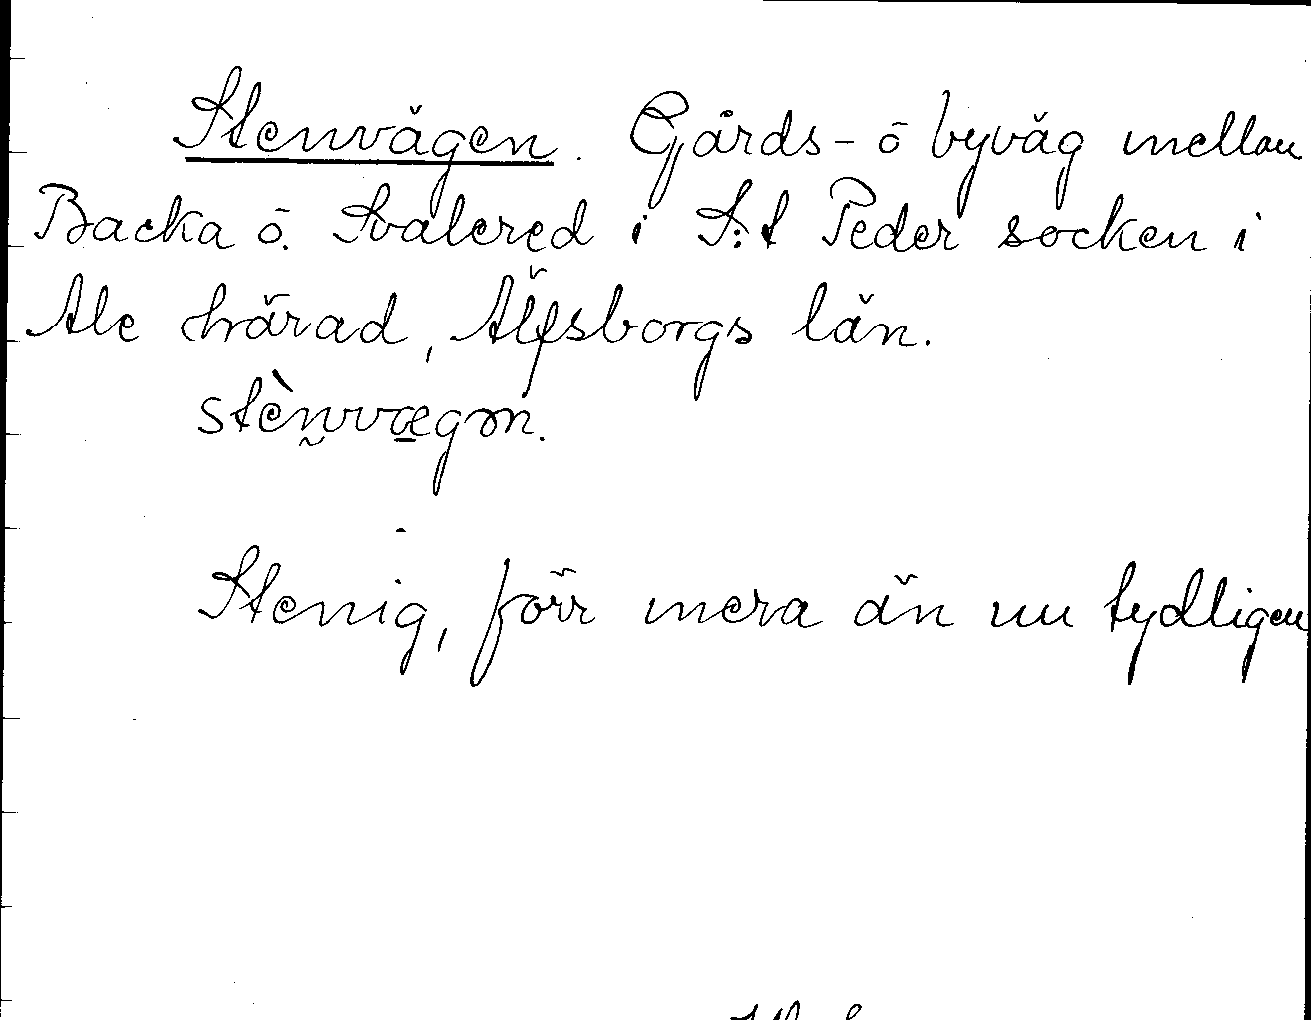 Stenvägen. Gårds- ō byväg mellan
Backa ō. Svalered i S:t Peder socken i
Ale härad, Älfsborgs län.
stènvægən.
Stenig, förr mera än nu tydligen